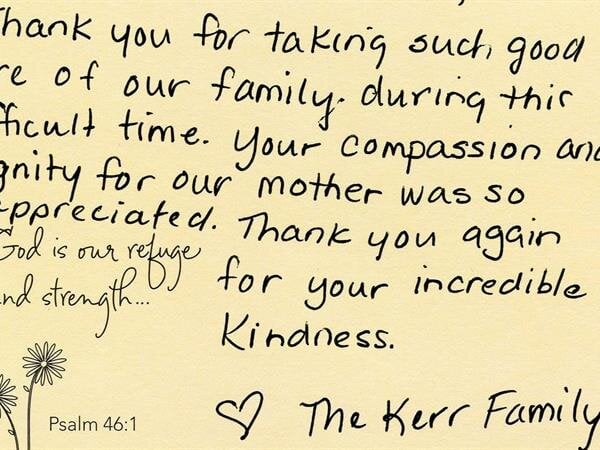 Thank you for taking such good
re of our family. during this
fficult time. Your compassion and
gnity for our mother was so
appreciated. Thank you again
God is our refuge
for your incredible
and strength...
Kindness.
♡ The Kerr Family
Psalm 46:1